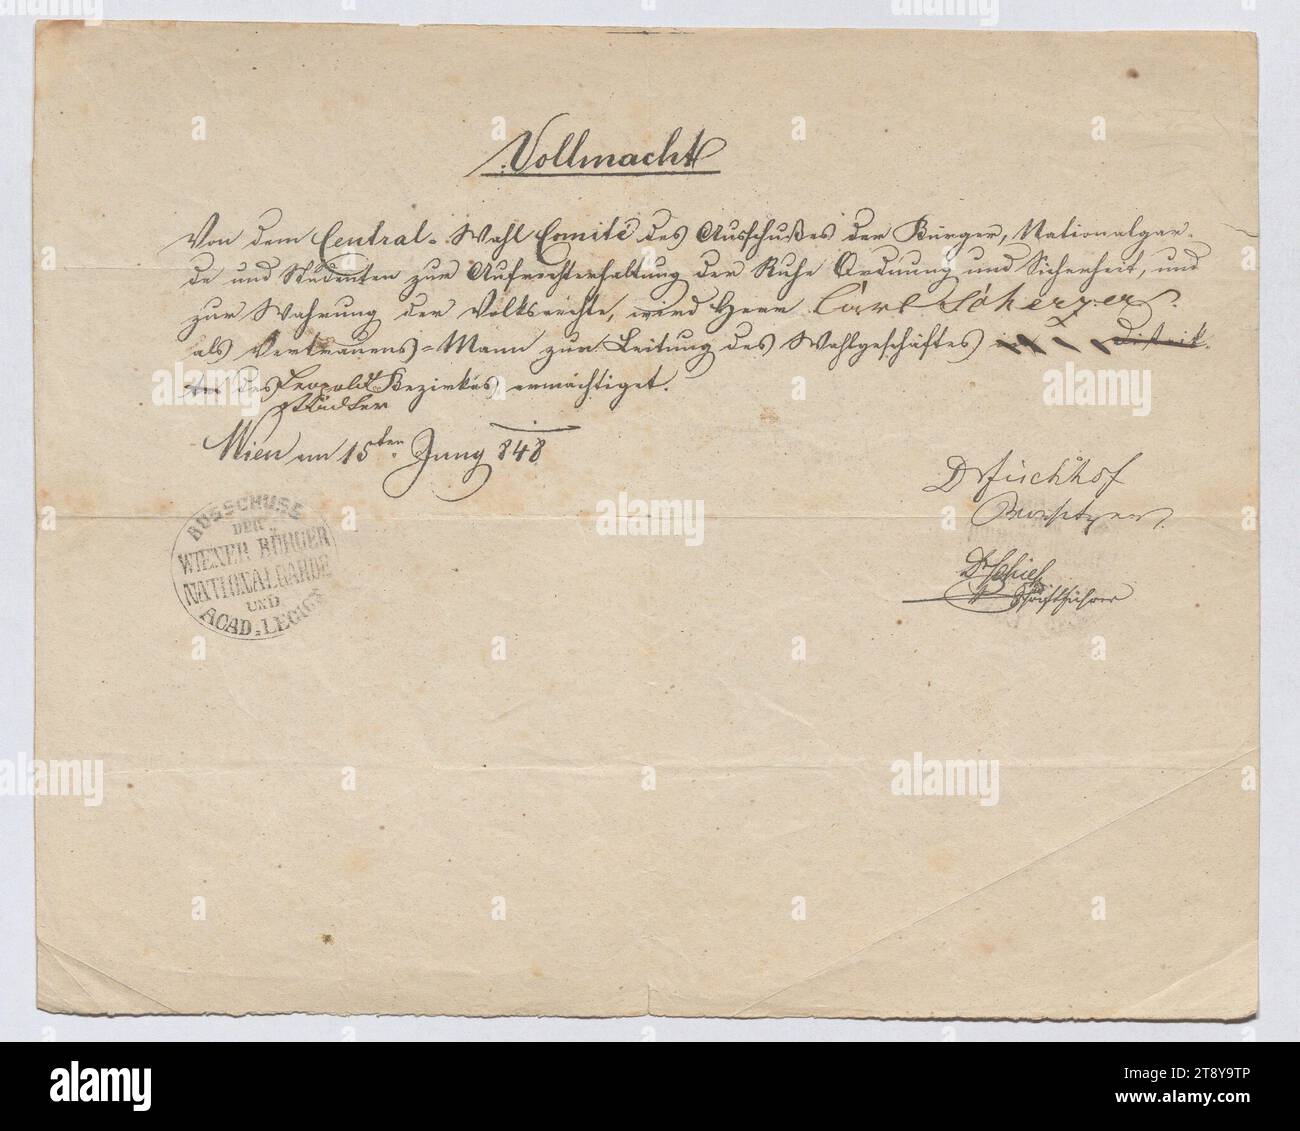 Vollmacht
Von dem Central-Wahl Comité des Ausschußes der Bürger, Nationalgar-
de und Studenten zur Aufrechterhaltung der Ruhe Ordnung und Sicherheit, und
zur Wahrung der Volksrechte, wird Herr Carl Scherzer
als Vertrauens-Mann zur Leitung des Wahlgeschäftes Distrik
des Leopold Bezirkes ermächtiget.
städter
Wien am 15ten Juny 848
Dr Fischhof
Vorsitzer
Dr Schief
Schriftführer
AUSSCHUSS
DER
WIENER BÜRGER
NATIONALGARDE
UND
ACAD. LEGION
alamy
Image ID: 2T8Y9TP
www.alamy.com